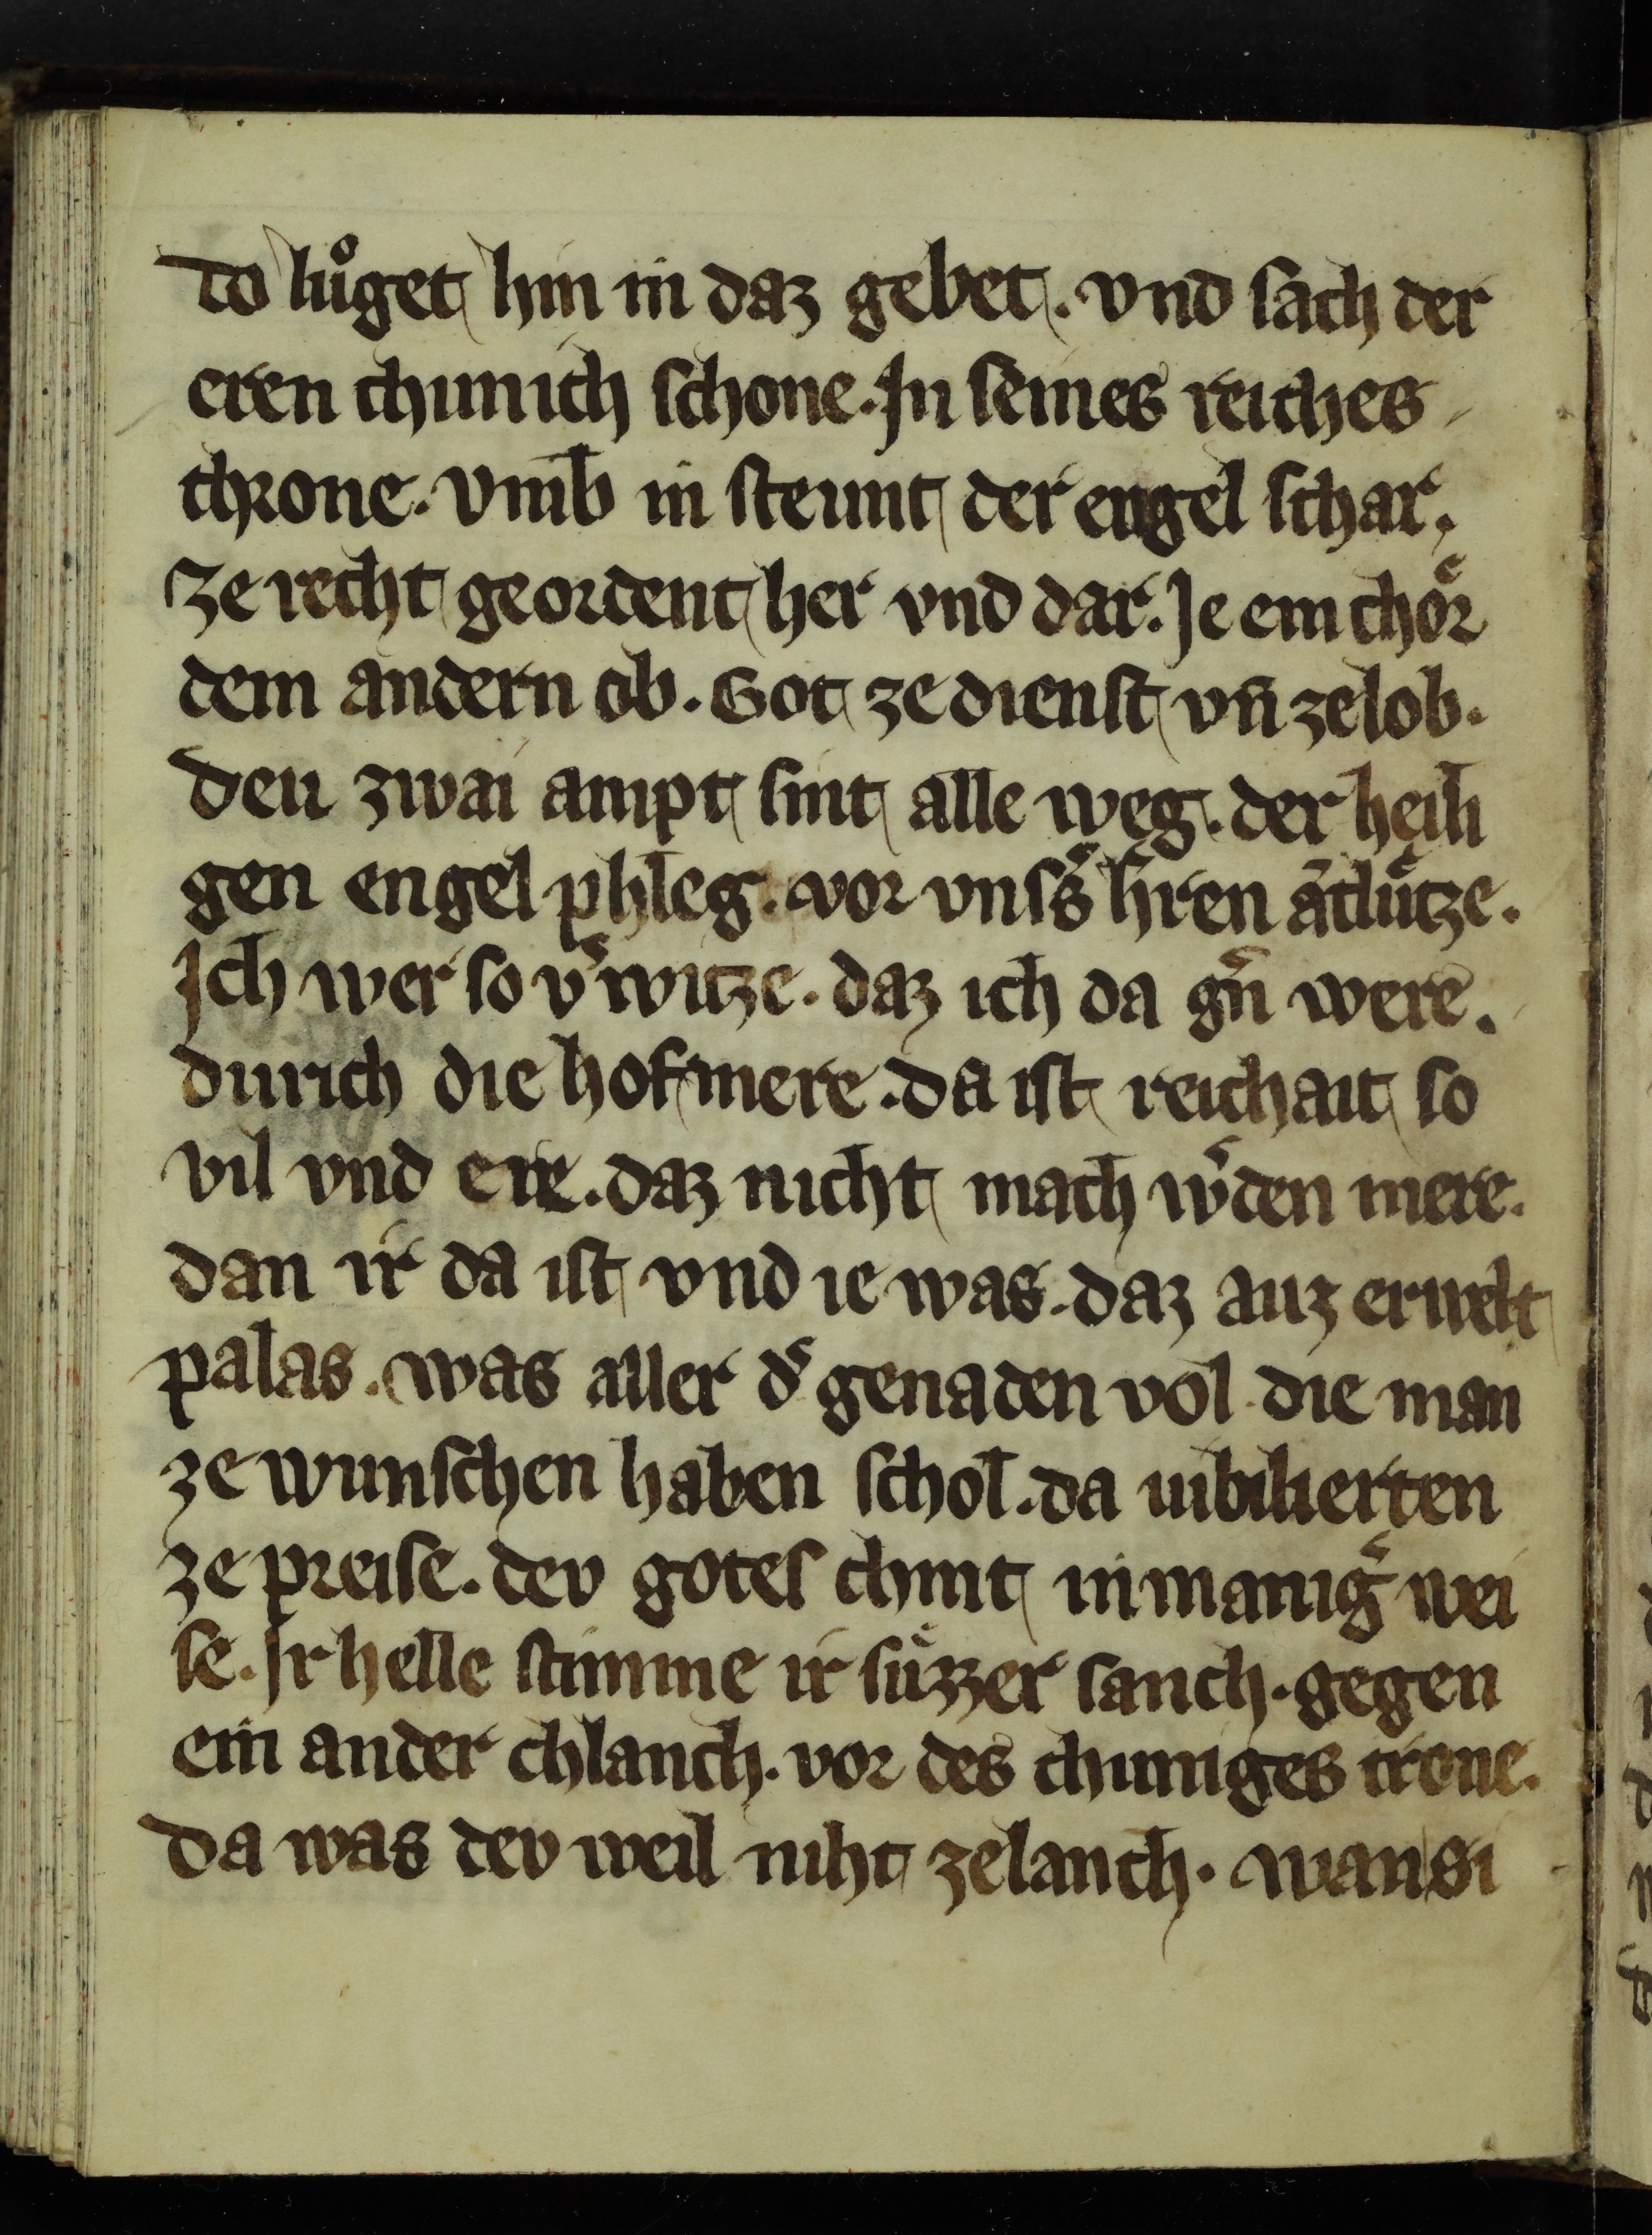 do lůget hin in daz gebet. vnd sach der
eren chunich schone. Jn seines reiches
throne. Vmb in steunt der engel schar.
Ze recht geordent her vnd dar. Je ein choͤr
dem andern ob. Got ze dienst vn̄ ze lob.
deu zwai ampt sint alle weg. der heili
gen engel phleg. vor vnsˀs hˀren ātluͤtze.
Jch wer so vˀwitze. daz ich da gˀn were.
durich die hofmere. da ist reichait so
vil vnd ere. daz nicht mach wˀden mere.
dan ir da ist vnd ie was. daz auz erwelt
palas. was aller dˀ genaden vol. die man
ze wunschen haben schol. da iubilierten
ze preise. dev gotes chint in manigˀ wei
se. Jr helle stimme ir suͤzzer sanch. gegen
ein ander chlanch. vor des chuniges trone.
da was dev weil niht ze lanch. wan si